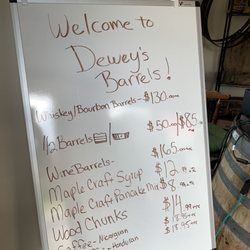 Welcome to
Dewey's
Barrels!
Whiskey/Bourbon Barrels - $130.00
1/2 Barrels $50.00 / $85.00
Wine Barrels - $165.00
Maple Craft Syrup $12
Maple Craft Pancake Mix $8
Wood Chunks $14.99
Coffee - Nicaraguan $18.95
$18.95